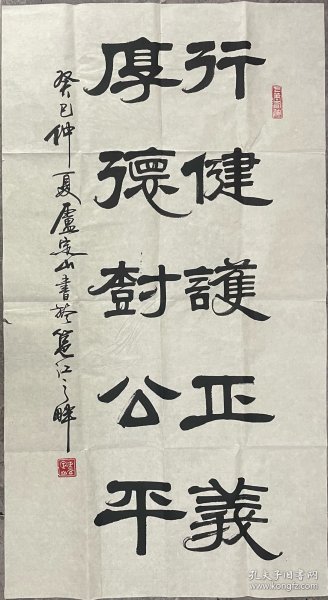 行健護正義
厚德尌公平
癸巳仲夏盧定山書於邕江之畔
孔夫子旧书网